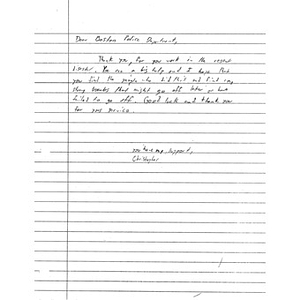 Dear Boston Police Department,
Thank you for you work in the recent
You are a big help and I hope that
you find the people who did this and find any
bombs that might go off later or have
failed to go off. Good luck and thank you
for your service.
you have my support,
Christopher